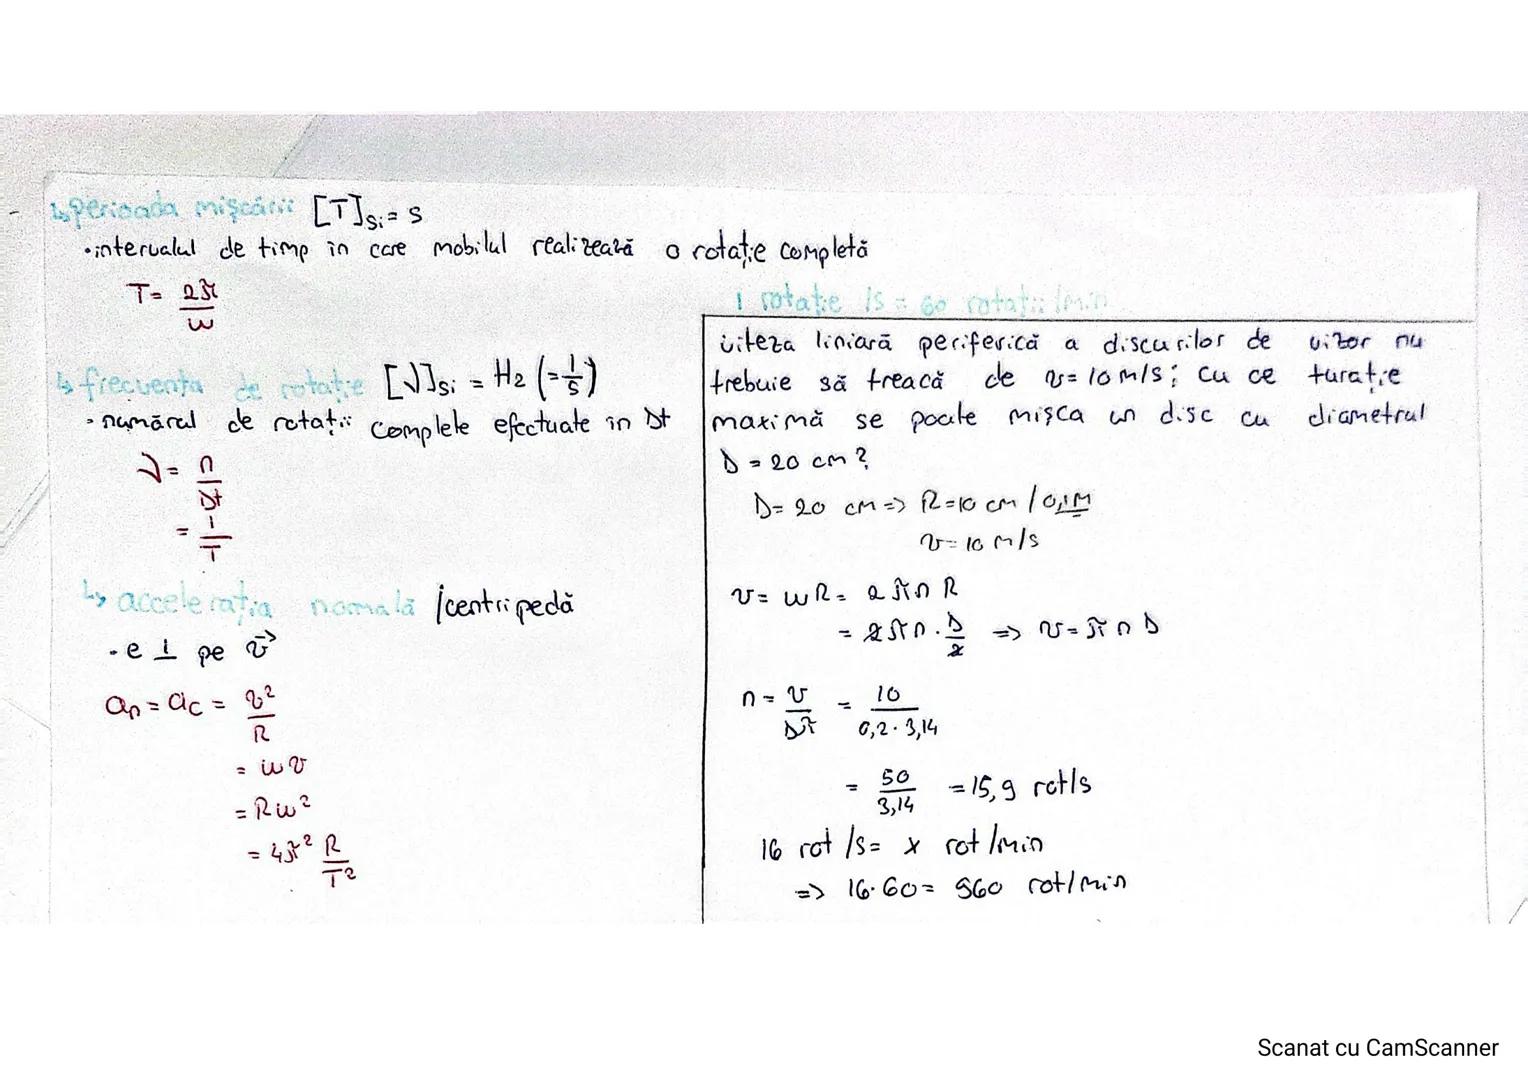 ↳ perioada mișcării [T]Si = s
• intervalul de timp în care mobilul realizează o rotație completă
T = 2π/ω
↳ frecvența de rotație [ν]Si = Hz (= 1/s)
• numărul de rotații complete efectuate în Δt
ν = n/Δt
= 1/T
↳ accelerația normală /centripedă
• e ⊥ pe v⃗
an = ac = v²/R
= ωv
= Rω²
= 4π² R/T²
1 rotație /s = 60 rotații /min
viteza liniară periferică a discurilor de vizor nu
trebuie să treacă de v = 10 m/s; cu ce turație
maximă se poate mișca un disc cu diametrul
D = 20 cm?
D = 20 cm => R = 10 cm / 0,1M
v = 10 m/s
v = ωR = 2πn R
= 2πn · D/2 => v = πnD
n = v/Dπ = 10/0,2 · 3,14
= 50/3,14 = 15,9 rot/s
16 rot /s = x rot /min
=> 16·60 = 960 rot/min
Scanat cu CamScanner